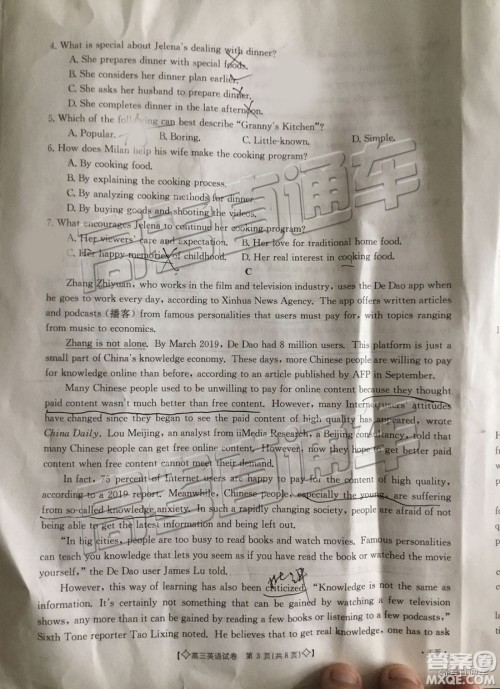 4. What is special about Jelena's dealing with dinner?
A. She prepares dinner with special foods.
B. She considers her dinner plan earlier.
C. She asks her husband to prepare dinner.
D. She completes dinner in the late afternoon.
5. Which of the following can best describe "Granny's Kitchen"?
A. Popular. B. Boring. C. Little-known. D. Simple.
6. How does Milan help his wife make the cooking program?
A. By cooking food.
B. By explaining the cooking process.
C. By analyzing cooking methods for dinner.
D. By buying goods and shooting the videos.
7. What encourages Jelena to continue her cooking program?
A. Her viewers' care and expectation. B. Her love for traditional home food.
C. Her happy memories of childhood. D. Her real interest in cooking food.
C
Zhang Zhiyuan, who works in the film and television industry, uses the De Dao app when
he goes to work every day, according to Xinhua News Agency. The app offers written articles
and podcasts (播客) from famous personalities that users must pay for, with topics ranging
from music to economics.
Zhang is not alone. By March 2019, De Dao had 8 million users. This platform is just a
small part of China's knowledge economy. These days, more Chinese people are willing to pay
for knowledge online than before, according to an article published by AFP in September.
Many Chinese people used to be unwilling to pay for online content because they thought
paid content wasn't much better than free content. However, many Internet users' attitudes
have changed since they began to see the paid content of high quality has appeared, wrote
China Daily. Lou Meijing, an analyst from iiMedia Research, a Beijing consultancy, told that
many Chinese people can get free online content. However, now they hope to get better paid
content when free content cannot meet their demand.
In fact, 75 percent of Internet users are happy to pay for the content of high quality,
according to a 2019 report. Meanwhile, Chinese people, especially the young, are suffering
from so-called knowledge anxiety. In such a rapidly changing society, people are afraid of not
being able to get the latest information and being left out.
"In big cities, people are too busy to read books and watch movies. Famous personalities
can teach you knowledge that lets you seem as if you have read the book or watched the movie
yourself," the De Dao user James Lu told.
However, this way of learning has also been criticized. "Knowledge is not the same as
information. It's certainly not something that can be gained by watching a few television
shows, any more than it can be gained by reading a few books or listening to a few podcasts,"
Sixth Tone reporter Tao Lixing noted. He believes that to get real knowledge, one has to ask
高三英语试卷 第3页(共8页)
高考直通车
答案圈
MXQE.COM